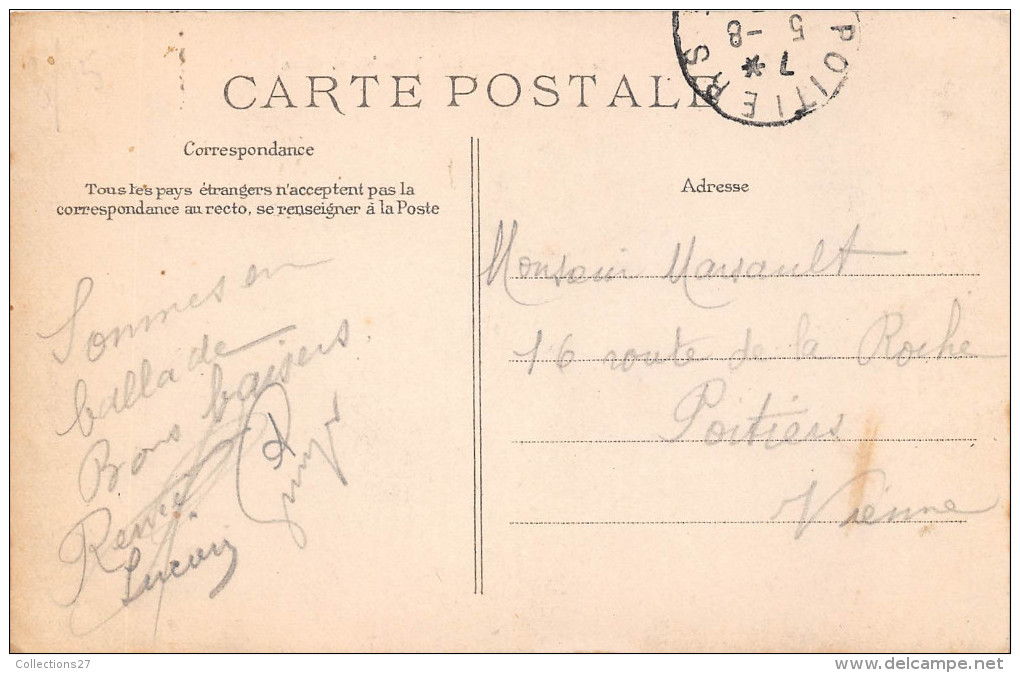 CARTE POSTALE
POITIERS
7 *
5 - 8
Correspondance
Tous les pays étrangers n'acceptent pas la
correspondance au recto, se renseigner à la Poste
Adresse
Sommes en
ballade
Bons baisers
Monsieur Marsault
16 route de la Roche
Poitiers
Vienne
Collections27
delcampe.net